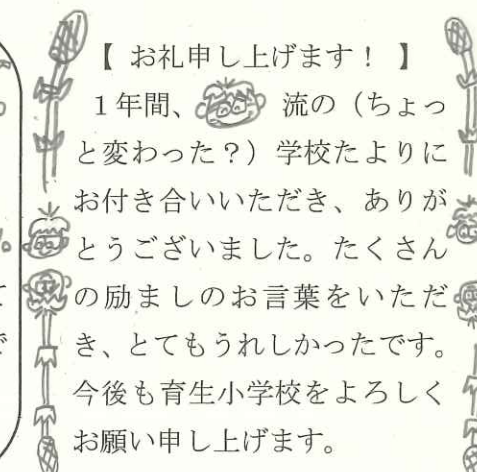 【 お礼申し上げます！ 】
１年間、 流の（ちょっ
と変わった？）学校たよりに
お付き合いいただき、ありが
とうございました。たくさん
の励ましのお言葉をいただ
き、とてもうれしかったです。
今後も育生小学校をよろしく
お願い申し上げます。